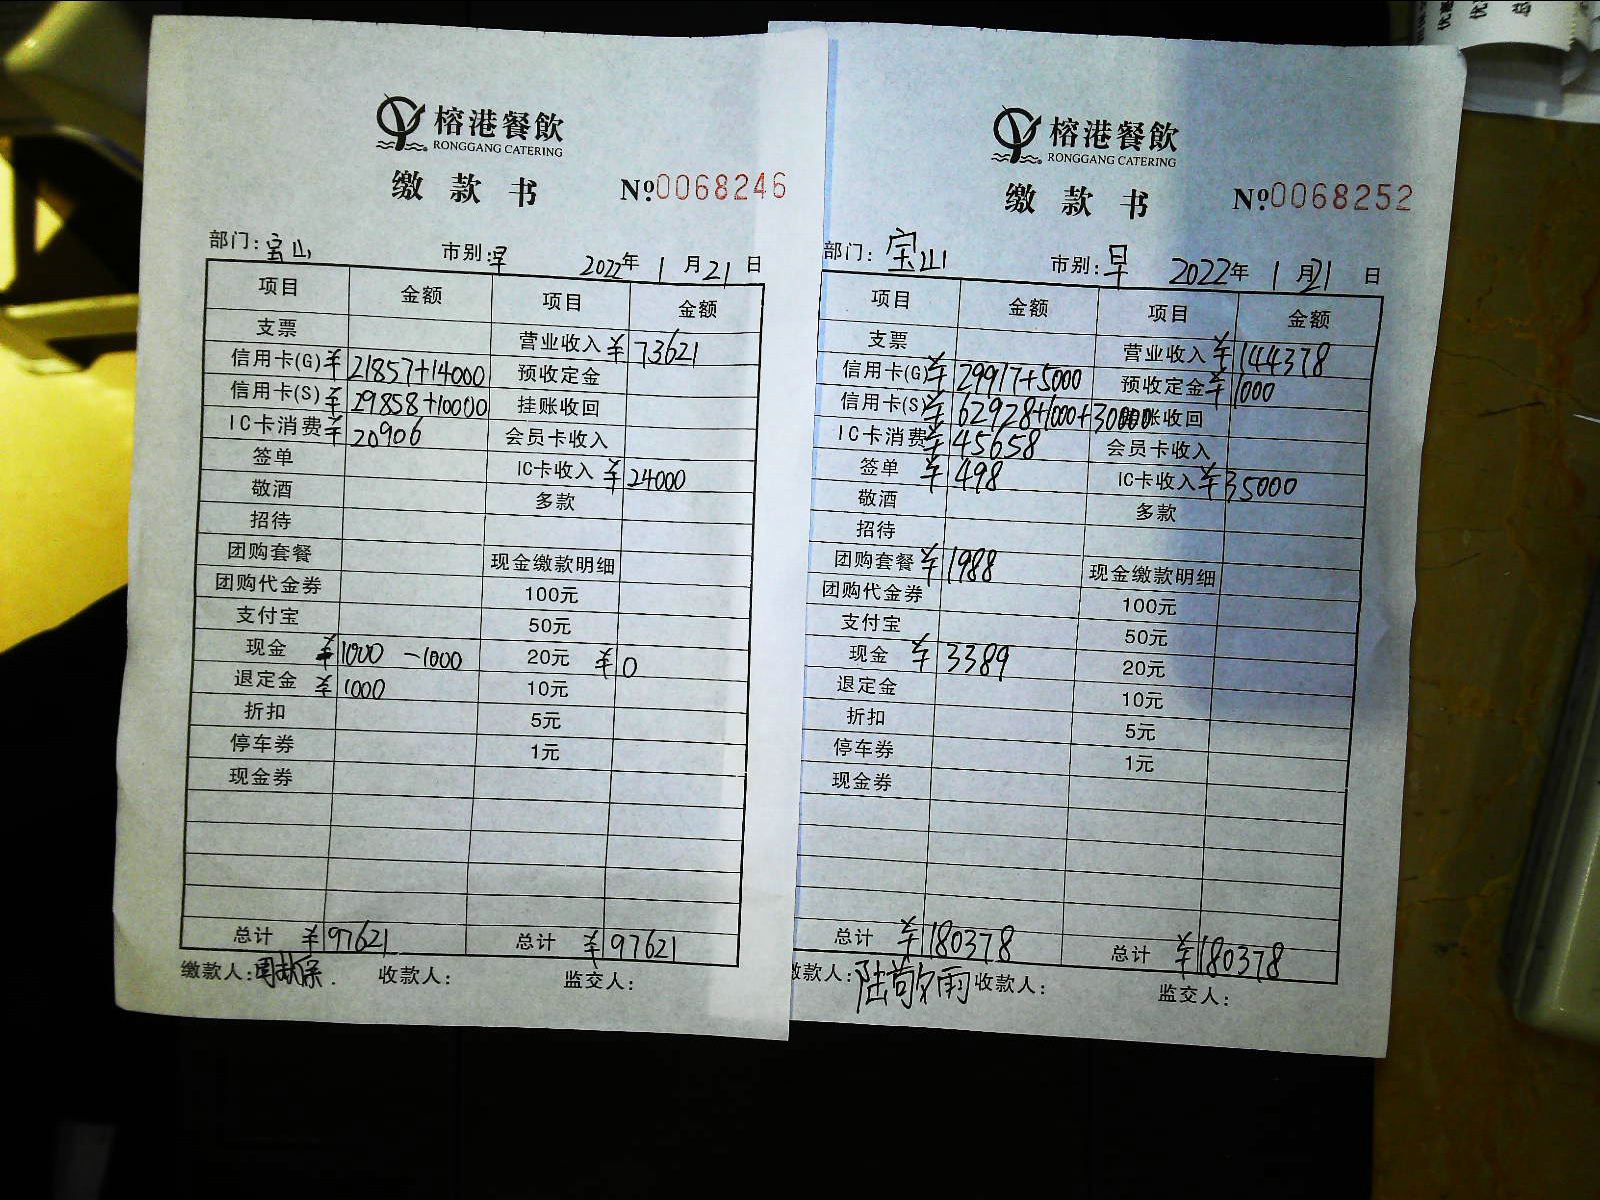 榕港餐飲
RONGGANG CATERING
缴款书 №0068246
部门:宝山 市别:早 2022年1月21日
项目 金额 项目 金额
支票 营业收入 ¥73621
信用卡(G) ¥21857+14000 预收定金
信用卡(S) ¥29858+10000 挂账收回
IC卡消费 ¥20906 会员卡收入
签单 IC卡收入 ¥24000
敬酒 多款
招待
团购套餐 现金缴款明细
团购代金券 100元
支付宝 50元
现金 ¥1000 -1000 20元 ¥0
退定金 ¥1000 10元
折扣 5元
停车券 1元
现金券
总计 ¥97621 总计 ¥97621
缴款人: 收款人: 监交人:
榕港餐飲
RONGGANG CATERING
缴款书 №0068252
部门:宝山 市别:早 2022年1月21日
项目 金额 项目 金额
支票 营业收入 ¥144378
信用卡(G) ¥29917+5000 预收定金 ¥1000
信用卡(S) ¥62928+1000+30000 挂账收回
IC卡消费 ¥45658 会员卡收入
签单 ¥498 IC卡收入 ¥35000
敬酒 多款
招待
团购套餐 ¥1988 现金缴款明细
团购代金券 100元
支付宝 50元
现金 ¥3389 20元
退定金 10元
折扣 5元
停车券 1元
现金券
总计 ¥180378 总计 ¥180378
缴款人:陆敬雨 收款人: 监交人: